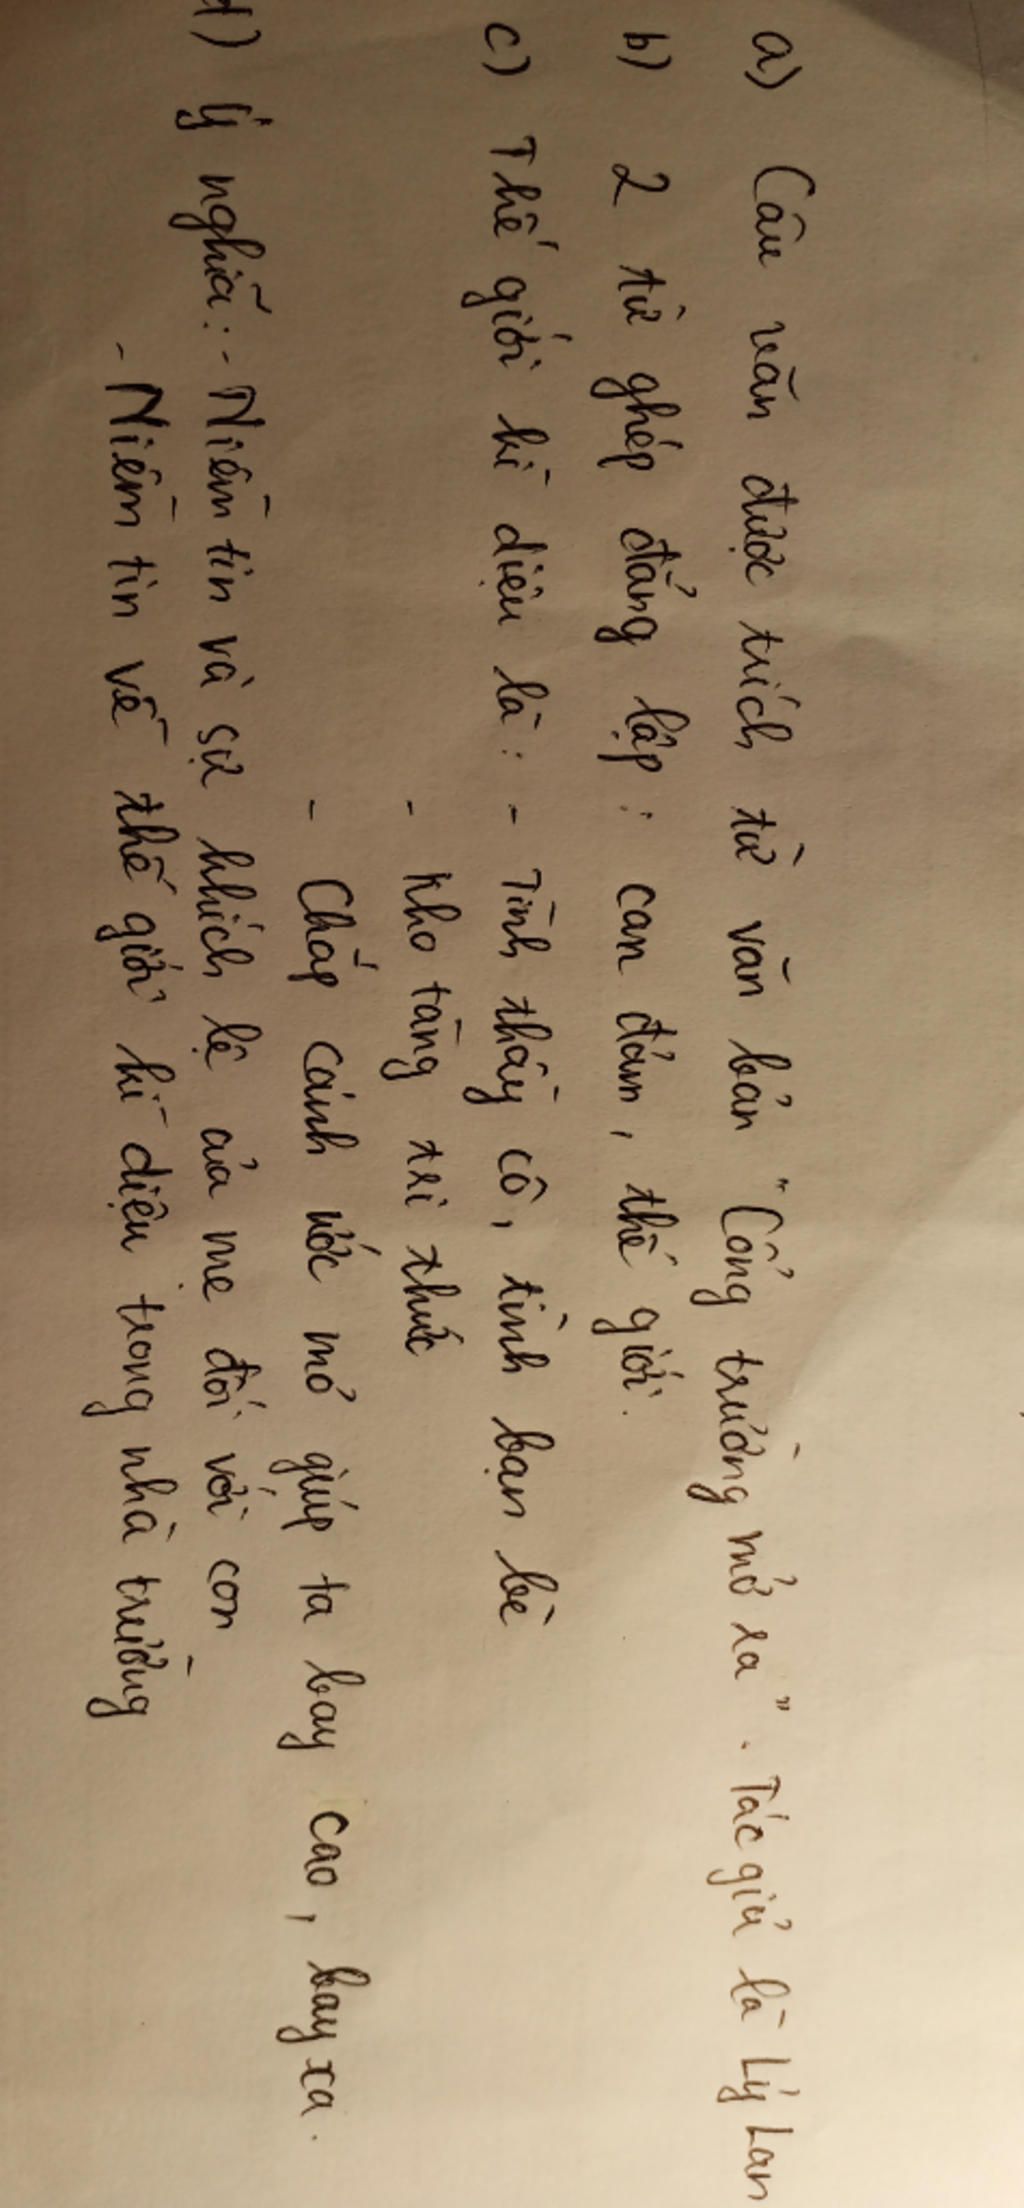 a) Câu văn được trích từ văn bản "Cổng trường mở ra". Tác giả là Lý Lan
b) 2 từ ghép đẳng lập: can đảm, thế giới.
c) Thế giới kì diệu là: - Tình thầy cô, tình bạn bè
- Kho tàng tri thức
- Chắp cánh ước mơ giúp ta bay cao, bay xa.
d) Ý nghĩa: - Niềm tin và sự khích lệ của mẹ đối với con
- Niềm tin về thế giới kì diệu trong nhà trường